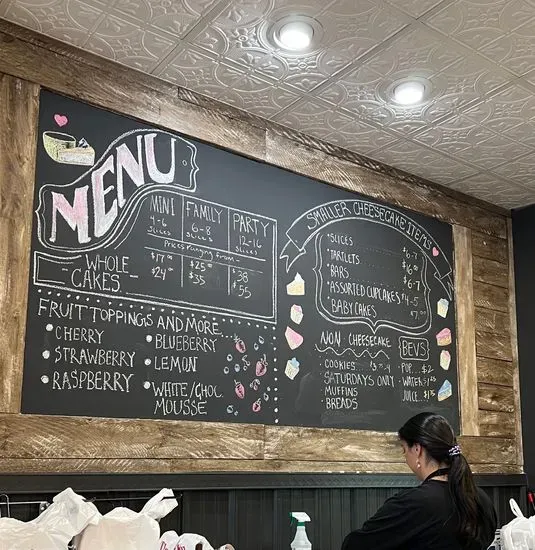 MENU
MINI FAMILY PARTY
4-6 6-8 12-16
slices slices slices
Prices ranging from-
WHOLE
- CAKES -
$17⁰⁰ $25⁰⁰ $38
$24⁰⁰ $35 $55
FRUIT TOPPINGS AND MORE
CHERRY
STRAWBERRY
RASPBERRY
BLUEBERRY
LEMON
WHITE/CHOC
MOUSSE
SMALLER CHEESECAKE ITEMS
SLICES $6-7
TARTLETS $16⁰⁰
BARS $6-7
ASSORTED CUPCAKES $4-5
BABY CAKES $7⁰⁰
NON CHEESECAKE
COOKIES
SATURDAYS ONLY
MUFFINS
- BREADS
BEVS
POP $2
WATER
JUICE